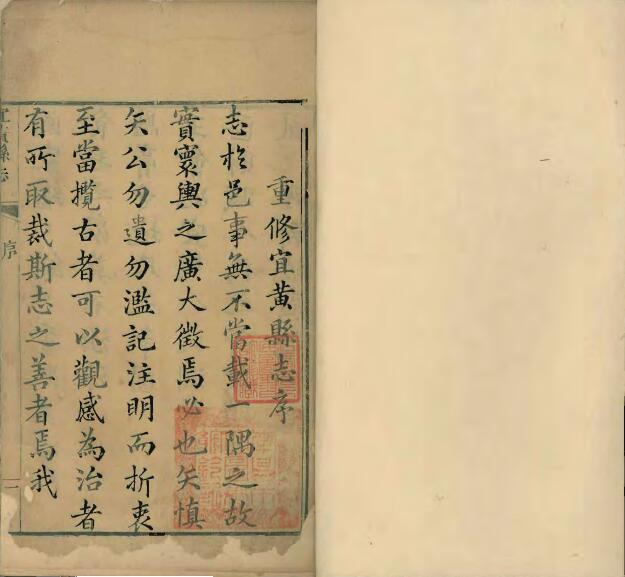 重修宜黃縣志序
志於邑事無不當載一隅之故
實寰輿之廣大徵焉必也矢慎
矢公勿遺勿濫記注明而折衷
至當攬古者可以觀感為治者
有所取裁斯志之善者焉我
宜黃縣志
序
一